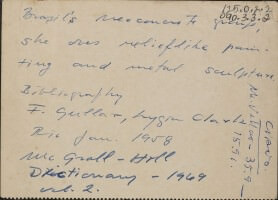 Brazil's Neoconcrete group,
she does relieflike pain-
ting and metal sculpture
Bibliography
F. Gullar, Lygia Clark
Rio Jan. 1958
Mc Grall-Hill
Dictionary - 1969
vol. 2.
125.0.2-2
090-3.3-2